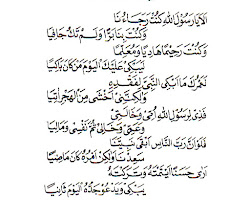 اَلَا يَا رَسُوْلَ اللهِ كُنْتَ رَجَاءَنَا
وَكُنْتَ بِنَا بَرًّا وَلَمْ تَكُ جَافِيًا
وَكُنْتَ رَحِيْمًا هَادِيًا وَمُعَلِّمًا
لِيَبْكِ عَلَيْكَ الْيَوْمَ مَنْ كَانَ بَاكِيًا
لَعَمْرُكَ مَا اَبْكِى النَّبِيَّ لِفَقْدِهِ
وَلٰكِنَّنِيْ اَخْشٰى مِنَ الْهَجْرِ اٰتِيًا
فِدًى لِرَسُوْلِ اللهِ اُمِّيْ وَخَالَتِيْ
وَعَمِّيْ وَخَالِيْ ثُمَّ نَفْسِيْ وَمَالِيَا
فَلَوْ اَنَّ رَبَّ النَّاسِ اَبْقٰى نَبِيَّنَا
سَعِدْنَا وَلٰكِنْ اَمْرُهُ كَانَ مَاضِيًا
اَرٰى حَسَنًا اَيْتَمْتَهُ وَتَرَكْتَهُ
يَبْكِيْ وَيَدْعُوْ جَدَّهُ الْيَوْمَ